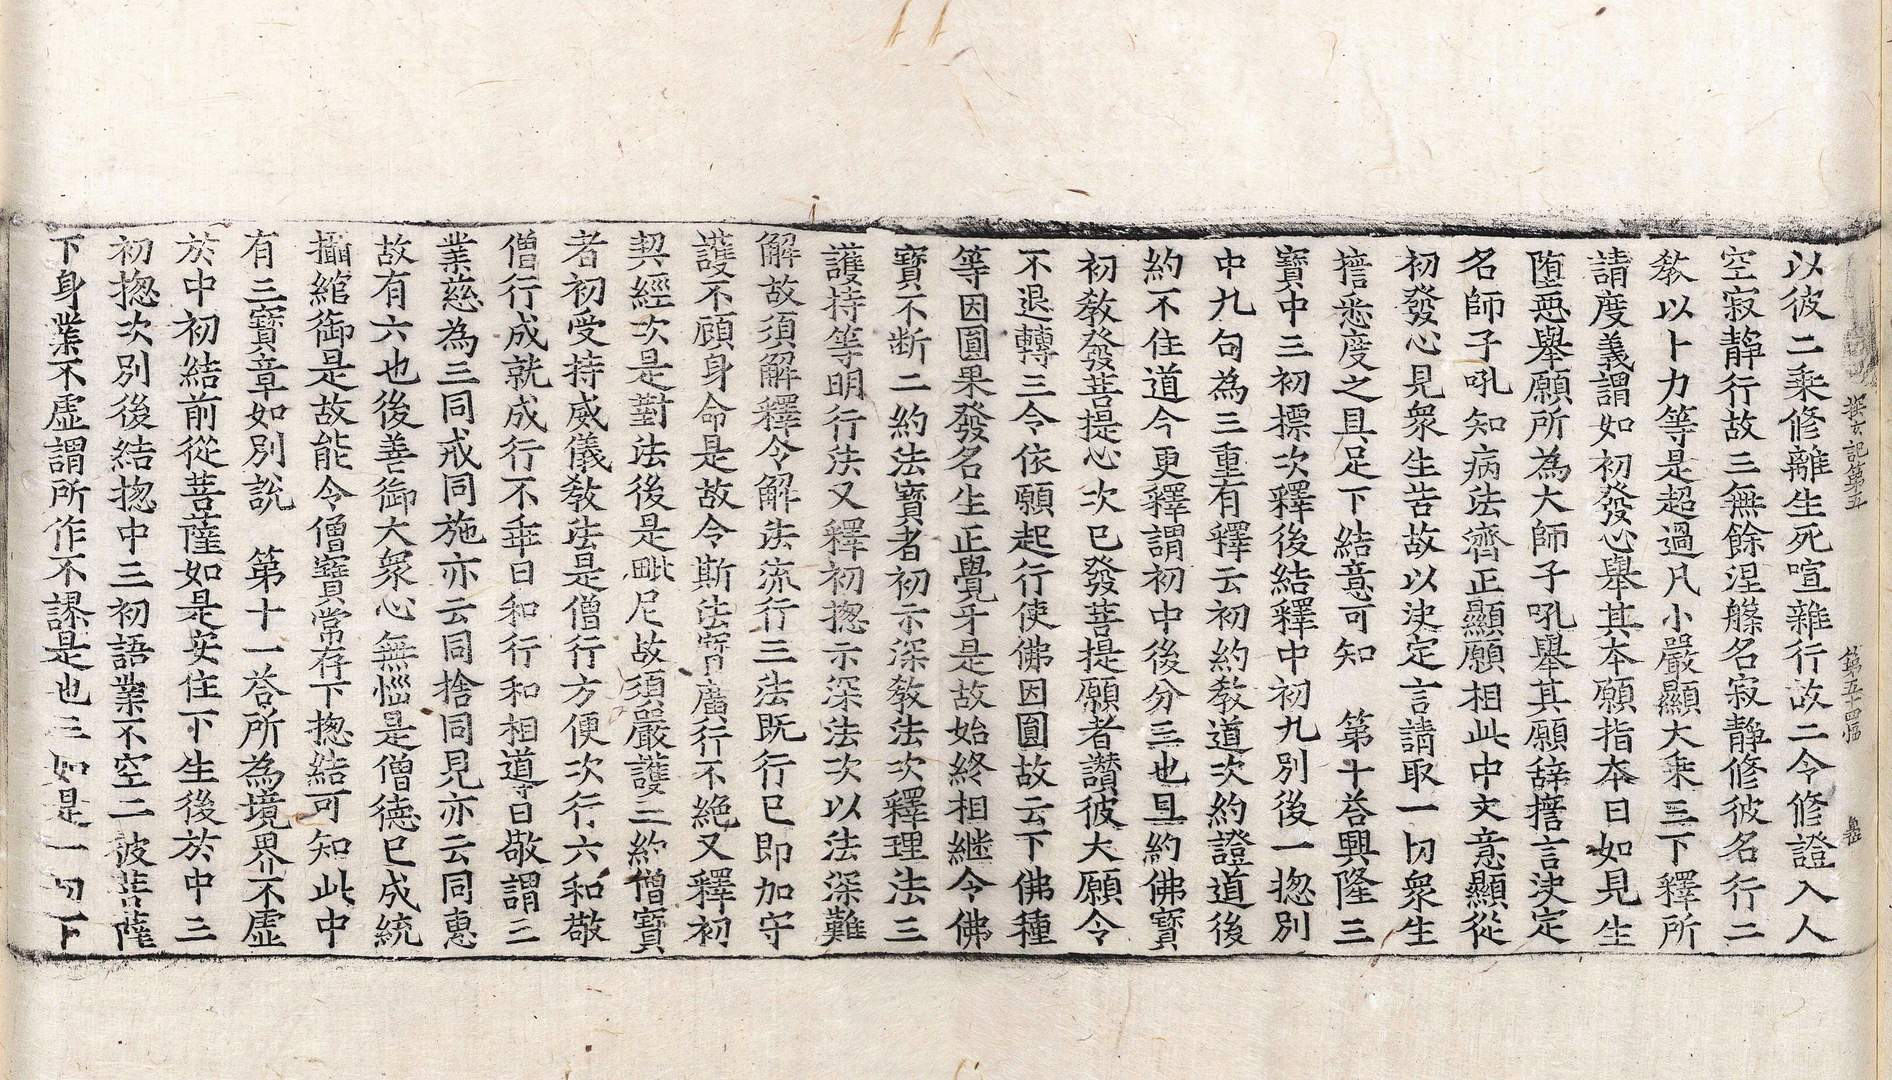 探玄記第五 第五十四幅
以彼二乘修離生死喧雜行故二令修證入人
空寂靜行故三無餘涅槃名寂靜修彼名行二
教以卜力等是超過凡小嚴顯大乘三下釋所
請度義謂如初發心舉其本願指本曰如見生
墮惡舉願所為大師子吼舉其願辞擔言決定
名師子吼知病法濟正顯願相此中文意顯從
初發心見衆生苦故以決定言請取一切衆生
擔悉度之具足下結意可知 第十荅興隆三
寶中三初標次釋後結釋中初九別後一揔別
中九句為三重有釋云初約教道次約證道後
約不住道今更釋謂初中後分三也且約佛寶
初教發菩提心次已發菩提願者讚彼大願令
不退轉三令依願起行使佛因圓故云下佛種
等因圓果發名生正覺牙是故始終相継令佛
寶不断二約法寶者初示深教法次釋理法三
護持等明行法又釋初揔示深法次以法深難
解故須解釋令解法流行三法既行已即加守
護不顧身命是故令斯法寶廣行不絶又釋初
契經次是對法後是毗尼故須嚴護三約僧寶
者初受持威儀教法是僧行方便次行六和敬
僧行成就成行不乖曰和行和相導曰敬謂三
業慈為三同戒同施亦云同捨同見亦云同惠
故有六也後善御大衆心無惱是僧德已成統
攝綰御是故能令僧寶常存下揔結可知此中
有三寶章如別說 第十一荅所為境界不虛
於中初結前從菩薩如是安住下生後於中三
初揔次別後結揔中三初語業不空二彼菩薩
下身業不虛謂所作不謬是也三如是一切下